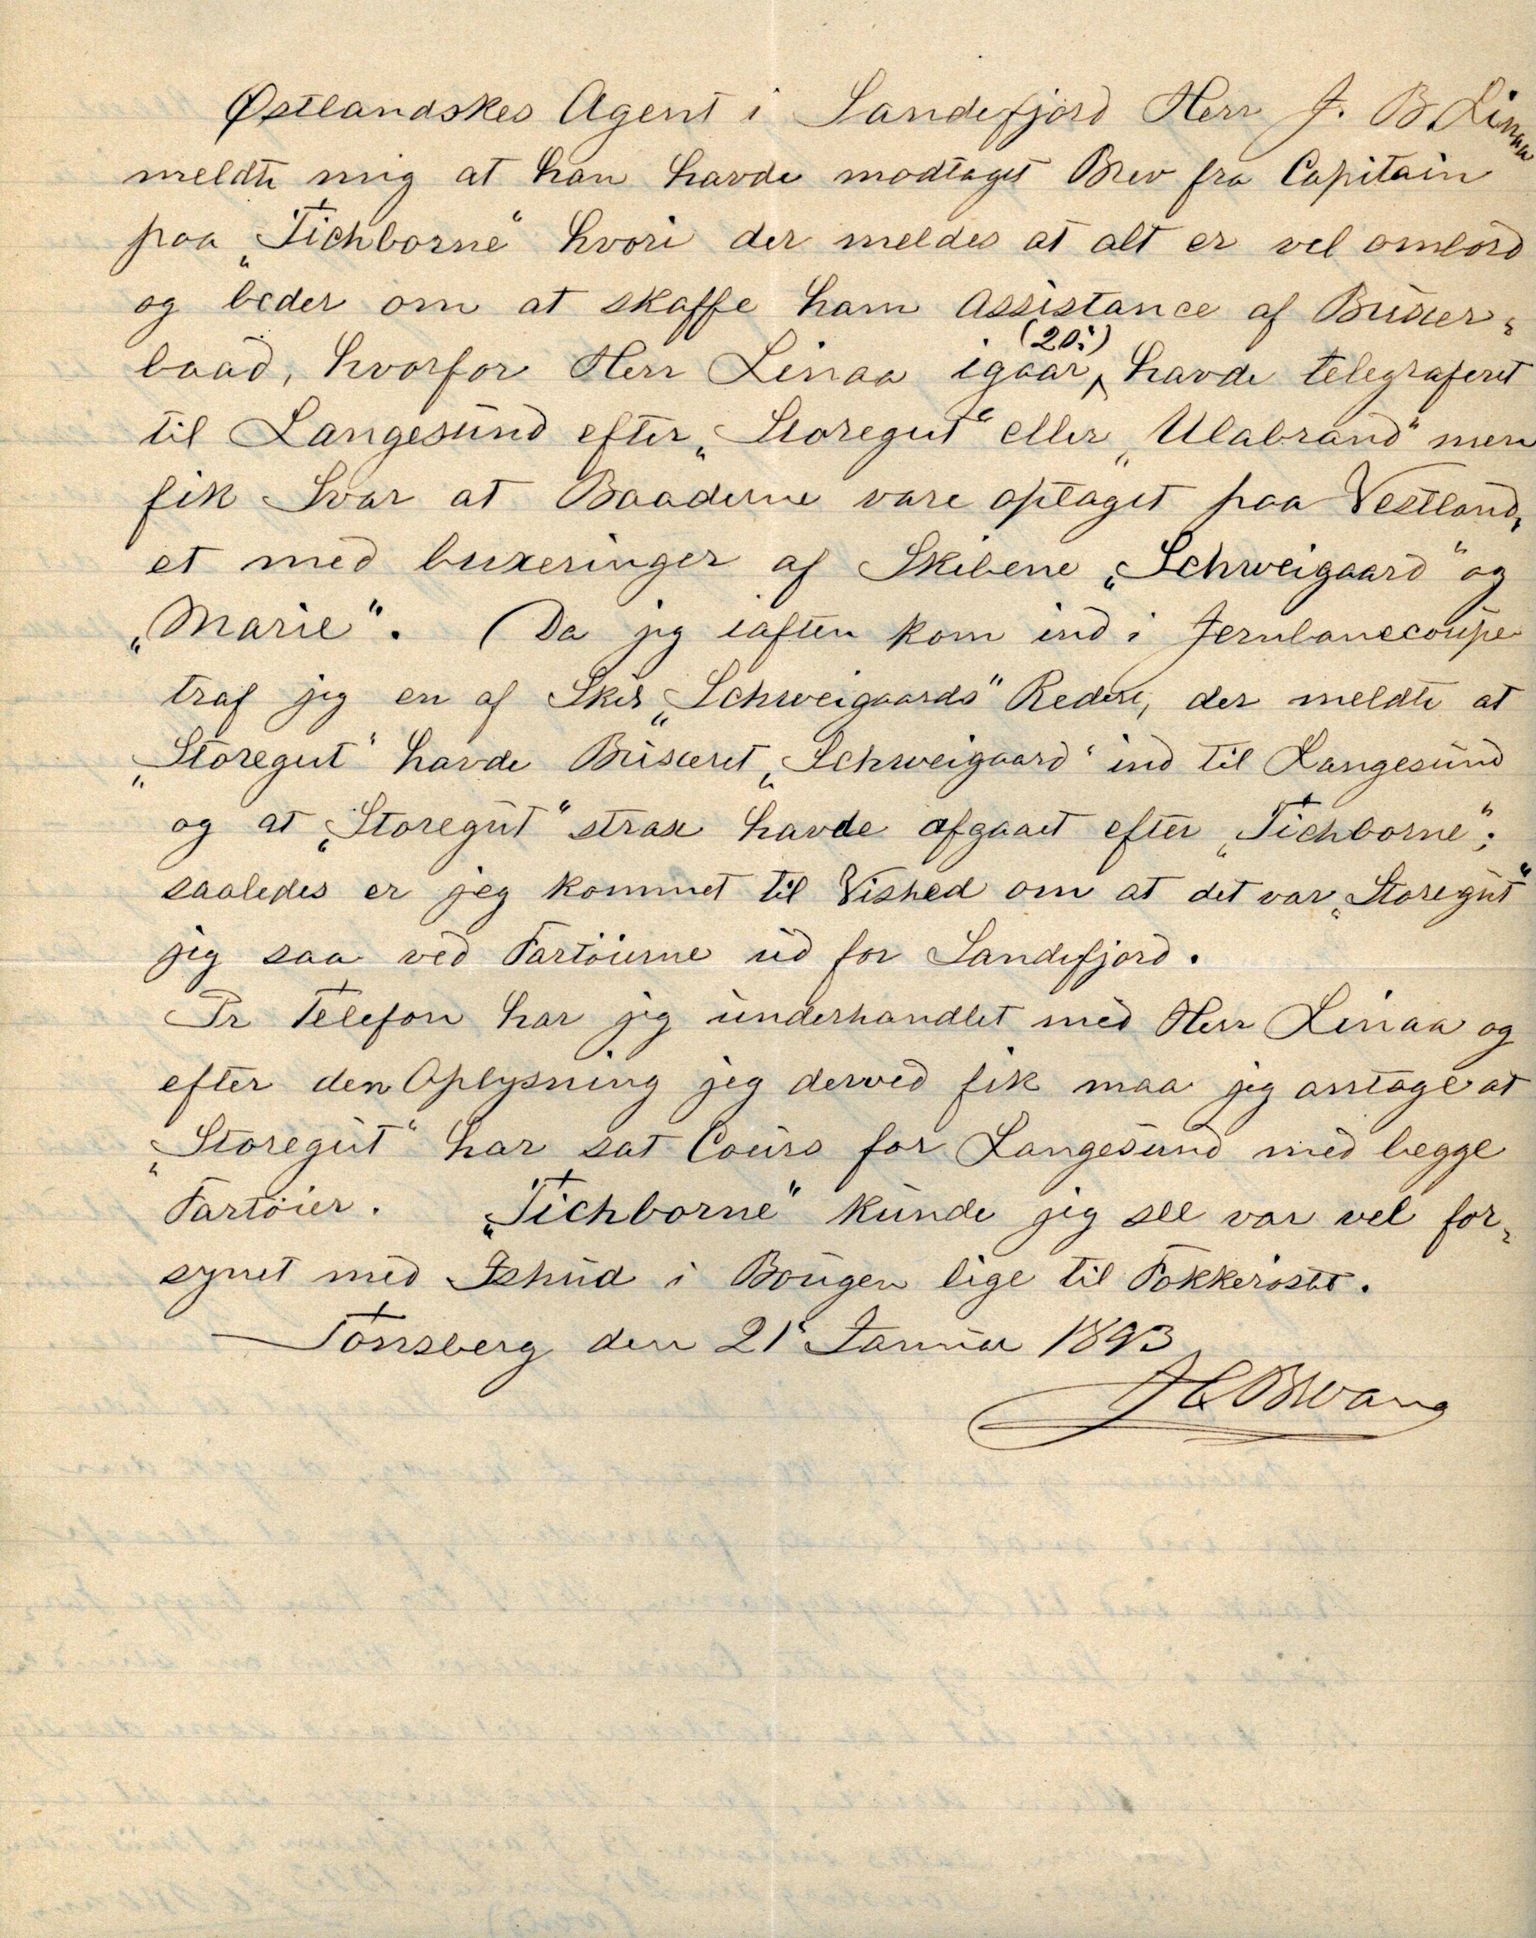 Østlandskes Agent i Sandefjord Herr J. B. Linaa
meldte mig at han havde modtaget Brev fra Capitain
paa „Tichborne“ hvori der meldes at alt er vel ombord
og beder om at skaffe ham Assistance af Buxer-
baad, hvorfor Herr Linaa igaar (20:) havde telegraferet
til Langesund efter „Storegut“ eller „Ulabrand“ men
fik Svar at Baaderne vare optaget paa Vestland,
et med buxeringer af Skibene „Schweigaard“ og
„Marie“. (Da jeg iaften kom ind i Jernbanecoupe
traf jeg en af Skib „Schweigaards“ Redere, der meldte at
„Storegut“ havde Buxeret „Schweigaard“ ind til Langesund
og at „Storegut“ strax havde afgaaet efter „Tichborne“;
saaledes er jeg kommet til Vished om at det var „Storegut“
jeg saa ved Fartøierne ud for Sandefjord.
Pr Telefon har jeg underhandlet med Herr Linaa og
efter den Oplysning jeg derved fik maa jeg antage at
„Storegut“ har sat Cours for Langesund med begge
Fartøier. „Tichborne“ kunde jeg see var vel for-
synet med Ishud i Bougen lige til Fokkerøstet.
Tønsberg den 21 Januar 1893